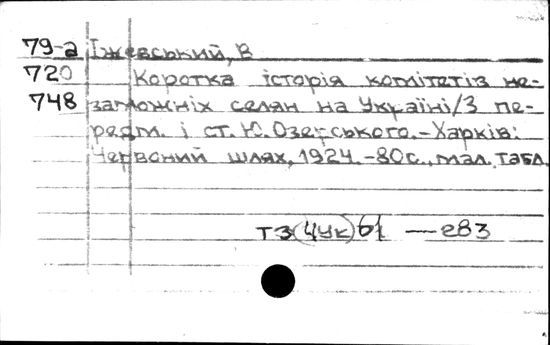 79-а Іжевський, В
720 Коротка історія комітетів не-
748 заможніх селян на Україні/З пе-
редм. і ст. Ю. Озерського.-Харків:
Червоний шлях, 1924.-80с., мал. табл.
ТЗ(4Ук)61 — е83